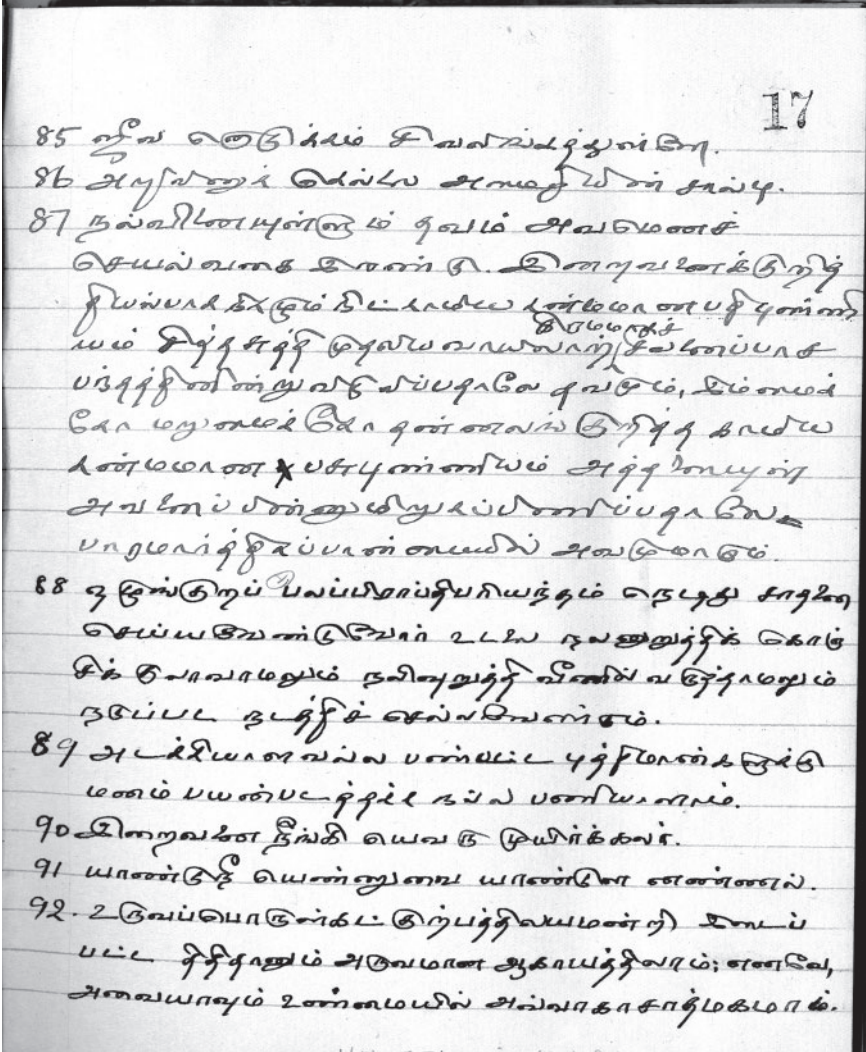 17
85 ஜீவ னொடுக்கம் சிவலிங்கத்துள்ளே.
86 அறிவினுக் கெல்லை அமைதியின் சால்பு.
87 நல்வினையுள்ளும் தவம் அவமெனச்
செயல்வகை இரண்டு. இறைவனைக்குறித்
தியல்பாக நிகழும் நிட்காமிய கன்மமான பதிபுண்ணி
கிரமமாகச்
யம் சித்தசுத்தி முதலியவாயிலாற் சீவனைப்பாச
பந்தத்தினின்று விடுவிப்பதாலே தவமும், இம்மைக்
கோ மறுமைக்கோ தன்னலங் குறித்த காமிய
கன்மமான பசுபுண்ணியம் அத்தளையுள்
அவனைப் பின்னுமிறுகப்பிணிப்பதாலே
பாரமார்த்திகப்பான்மையில் அவமுமாகும்.
88 ஒழுங்குறப் பலப்பிராப்திபரியந்தம் நெடிது சாதனை
செய்யவேண்டுவோர் உடலை நலனுறுத்திக் கொஞ்
சிக் குலாவாமலும் நலிவுறுத்தி வீணில் வருத்தாமலும்
நடுப்பட நடத்திச் செல்லவேண்டும்.
89 அடக்கியாளவல்ல பண்பட்ட புத்திமான்களுக்கு
மனம் பயன்படத்தக்க நல்ல பணியாளாம்.
90 இறைவனை நீங்கி யெவரு முயிர்க்கலர்.
91 யாண்டுநீ யெண்ணுவை யாண்டுள எண்ணல்.
92. உருவப்பொருள்கட் குற்பத்திலயமன்றி இடைப்
பட்ட திதிதானும் அருவமான ஆகாயத்திலாம்; எனவே,
அவையாவும் உண்மையில் அவ்வாகாசாத்மகமாம்.